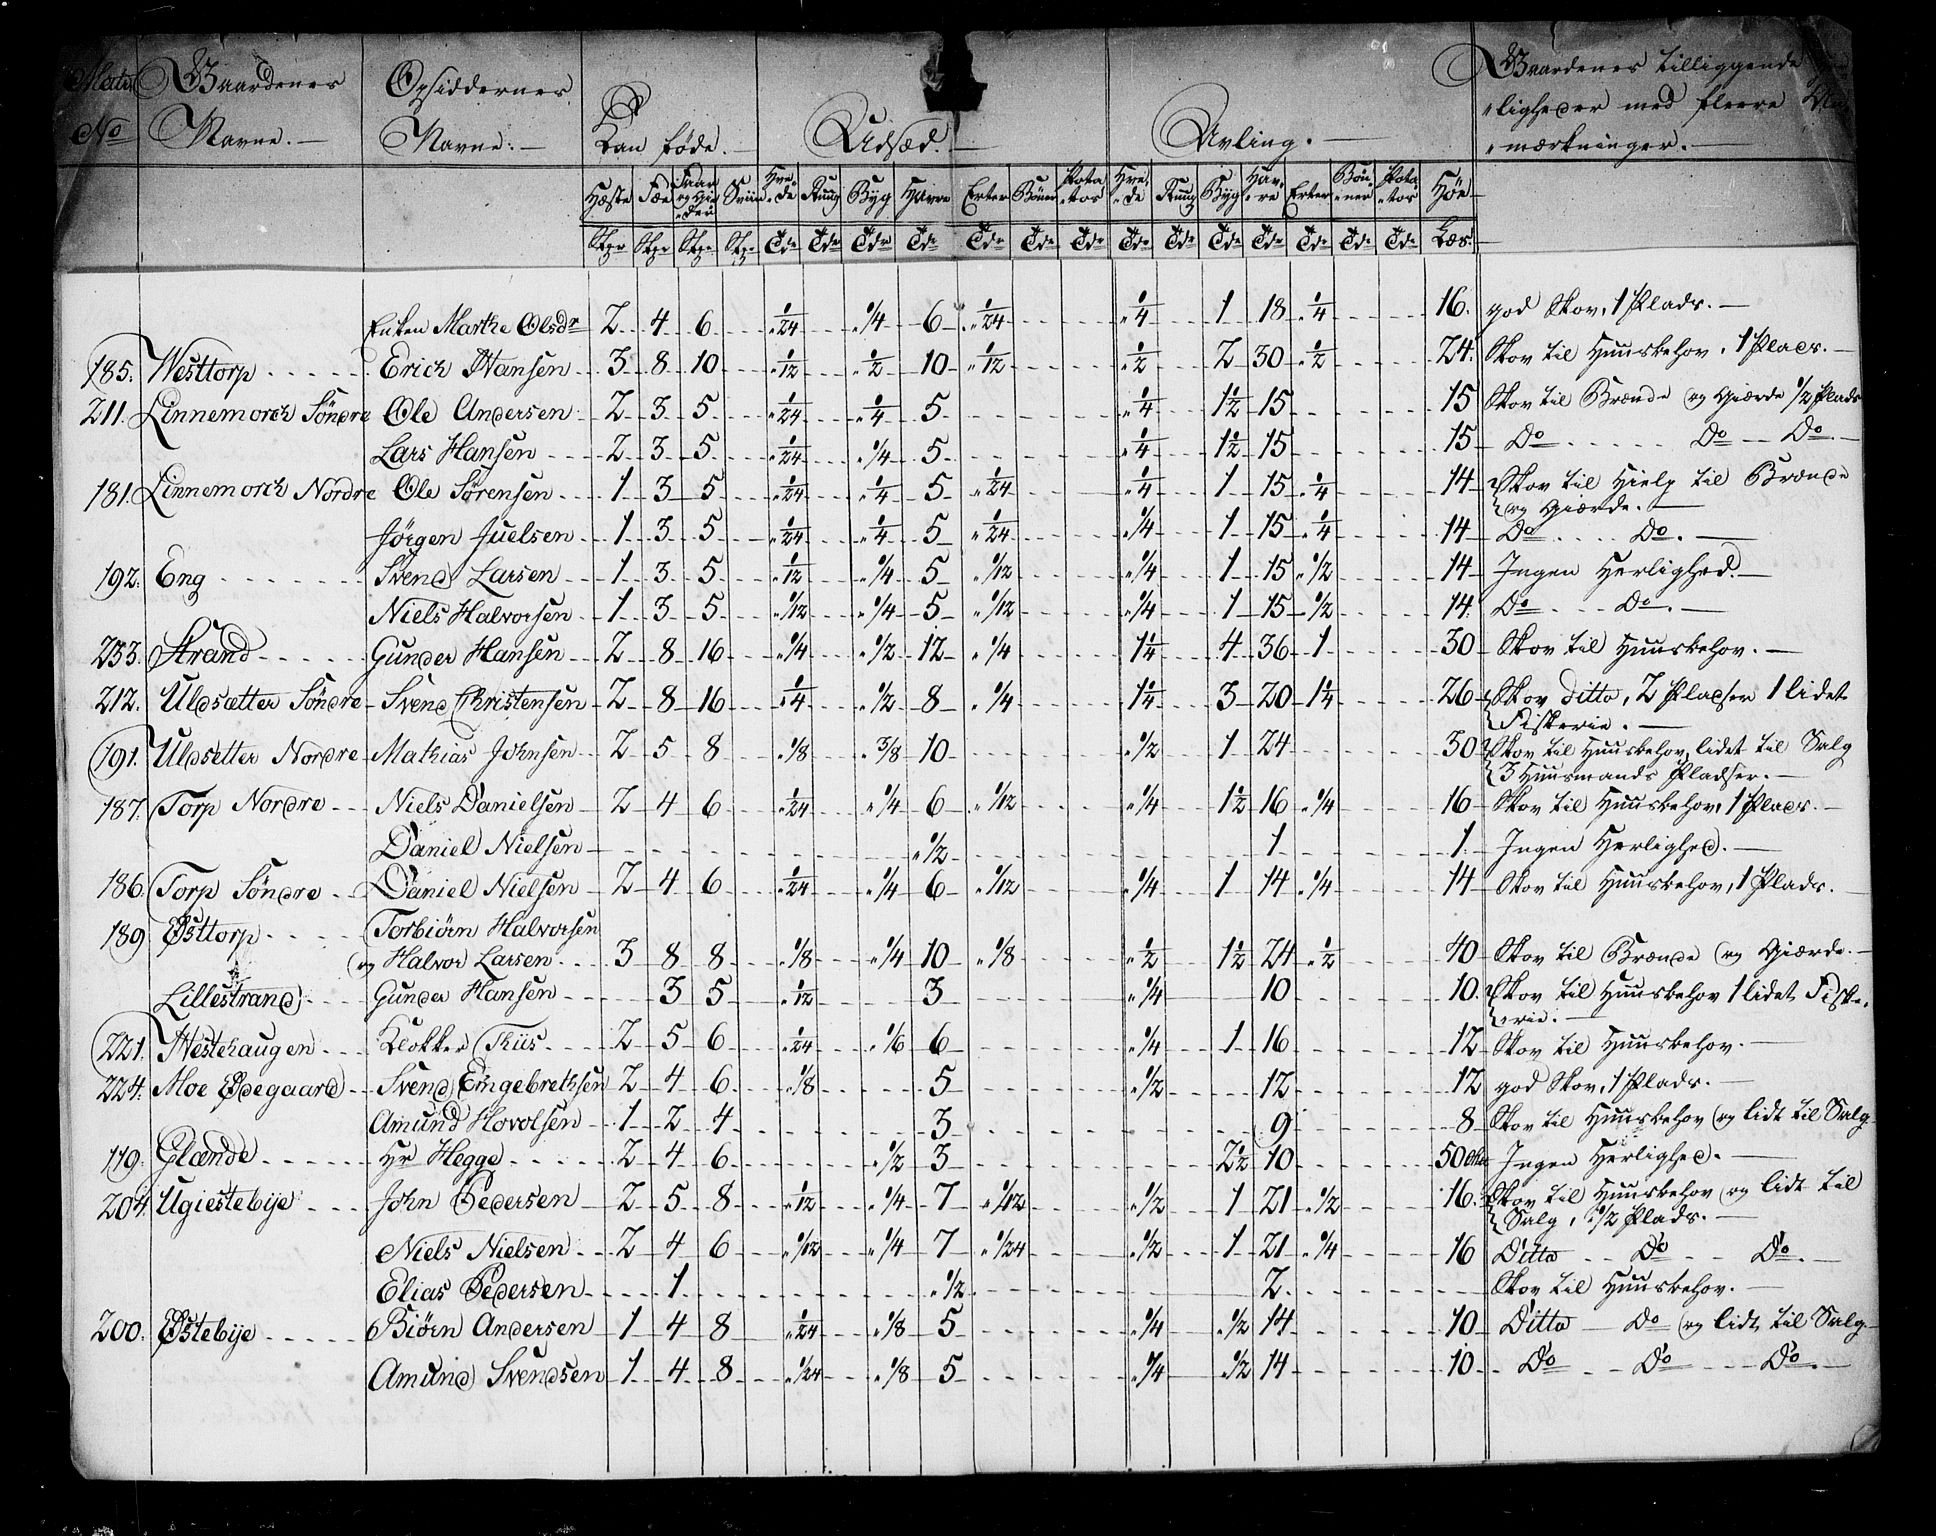 Matr Gaardenes Opsiddernes Gaardenes tilliggende
No Navne. Navne. Kan føde. Udsæd. Avling. ligheder med fleere
mærkninger.
Hæste Fæe Faar og Gie den Sviin Hve de Ruug Byg Havre Erter Böner Pota tos Hve de Ruug Byg Hav re Erter Bön ner Pota tos Höe
Stkr Stkr Stkr Stkr Tdr Tdr Tdr Tdr Tdr Tdr Tdr Tdr Tdr Tdr Tdr Tdr Tdr Tdr Læs.
Enken Marthe Olsdr 2 4 6 1/24 1/4 6 1/24 1/4 1 18 1/4 16. god Skov, 1 Plads.
185. Westtorp Erich Hansen 3 8 10 1/12 1/2 10 1/12 1/2 2 30 1/2 24. Skov til Huusbehov, 1 Plads.
211. Linnemorch Söndre Ole Andersen 2 3 5 1/24 1/4 5 1/4 1 1/2 15 15 Skov til Brænde og Giærde 1/2 Plads
Lars Hansen 2 3 5 1/24 1/4 5 1/4 1 1/2 15 15 Do Do Do
181. Linnemorch Nordre Ole Sörensen 1 3 5 1/24 1/4 5 1/24 1/4 1 15 1/4 14 Skov til Hielp til Brænde
og Giærde.
Jörgen Juelsen 1 3 5 1/24 1/4 5 1/24 1/4 1 15 1/4 14 Do Do.
192. Eng Svend Larsen 1 3 5 1/12 1/4 5 1/12 1/4 1 15 1/2 14 Ingen Herlighed.
Niels Halvorsen 1 3 5 1/12 1/4 5 1/12 1/4 1 15 1/2 14. Do Do.
233. Strand Gunder Hansen 2 8 16 1/4 1/2 12 1/4 1 1/4 4 36 1 30 Skov til Huusbehov.
212. Uldsætter Söndre Svend Christensen 2 8 16 1/4 1/2 8 1/4 1 1/4 3 20 1 1/4 26 Skov ditto, 2 Pladser 1 lidet
Fiskerie.
191. Uldsetter Nordre Mathias Johnsen 2 5 8 1/8 3/8 10 1/2 1 24 30 Skov til Huusbehov, lidet til Salg
3 Huusmands Pladser.
187. Torp Nordre Niels Danielsen 2 4 6 1/24 1/4 6 1/12 1/4 1 1/2 16 1/4 16 Skov til Huusbehov, 1 Plads.
Daniel Nielsen 1/2 1 1. Ingen Herlighed.
186. Torp Söndre Daniel Nielsen 2 4 6 1/24 1/4 6 1/12 1/4 1 14 1/4 14 Skov til Huusbehov, 1 Plads.
189 Østtorp Torbiörn Halvorsen
og Halvor Larsen 3 8 8 1/8 1/4 10 1/8 1/2 1 1/2 24 1/2 40 Skov til Brænde og Giærde.
Lillestrand Gunder Hansen 3 5 1/12 3 1/4 10 10. Skov til Huusbehov 1 lidet Fiske
rie.
221. Westehaugen Klokker Thiis 2 5 6 1/24 1/6 6 1/4 1 16 12 Skov til Huusbehov.
224. Moe Ødegaard Svend Engebrethsen 2 4 6 1/8 5 1/2 12 12 god Skov, 1 Plads.
Amund Hovolsen 1 2 4 3 9 8 Skov til Huusbehov og lidt til Salg
119. Elænde Hr Hegge 2 4 6 1/2 3 2 1/2 10 50 Ingen Herlighed.
204. Ugiestebÿe John Pedersen 2 5 8 1/12 1/4 7 1/12 1/2 1 21 1/2 16. Skov til Huusbehov og lidt til
Salg, 1/2 Plads.
Niels Nielsen 2 4 6 1/12 1/4 7 1/24 1/2 1 21 1/4 16 Ditto Do Do.
Elias Pedersen 1 1/2 2 Skov til Huusbehov.
200. Østebÿe Biörn Andersen 1 4 8 1/24 1/8 5 1/4 1/2 14 10 Ditto Do og lidt til Salg.
Amund Svendsen 1 4 8 1/24 1/8 5 1/4 1/2 14 10 Do Do Do.